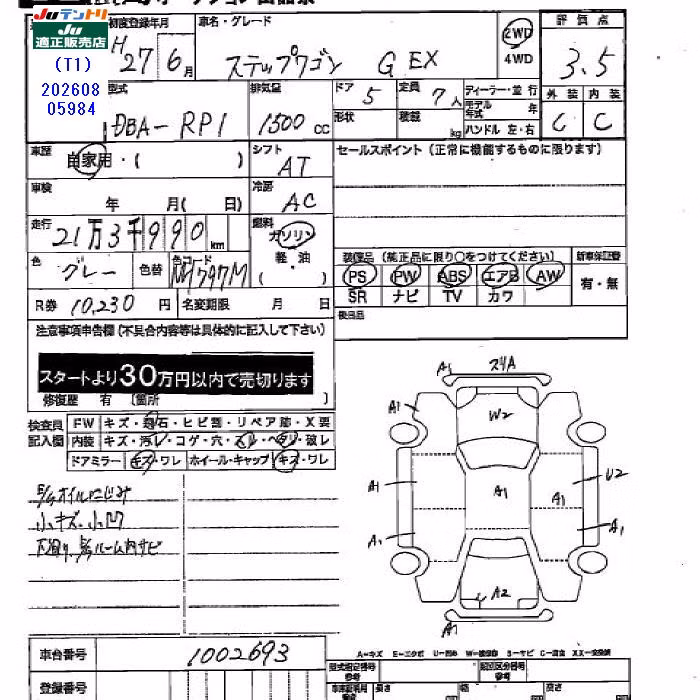 JUテントリ
JU
適正販売店
(T1)
202608
05984
初度登録年月
H 27 年 6 月
車名・グレード
ステップワゴン G EX
2WD
4WD
評価点
3.5
型式
DBA-RP1
排気量
1500 cc
ドア
5
定員
7人
形状
積載
kg
ディーラー・並行
モデル年式 年
ハンドル 左・右
外装 内装
C C
車歴
自家用・( )
シフト
AT
セールスポイント (正常に機能するものに限ります)
車検
年 月( 日)
冷房
AC
走行
21万3千990km
燃料
ガソリン
軽油
( )
色
グレー
色替
色コード
NH797M
装備品 (純正品に限り○をつけてください)
PS PW ABS エアB AW
SR ナビ TV カワ
新車保証書
有・無
R券 10,230 円
名変期限 月 日
後日品
注意事項申告欄 (不具合内容等は具体的に記入して下さい)
スタートより30万円以内で売切ります
修復歴 有 [箇所 ]
検査員記入欄
FW キズ・飛石・ヒビ割・リペア跡・X要
内装 キズ・汚レ・コゲ・穴・スレ・ヘタリ・破レ
ドアミラー キズ・ワレ ホイール・キャップ キズ・ワレ
E/gオイルにじみ
小キズ・小凹
下廻り、
ルーム内サビ
A1
A1
W2
A1
A1
A1
U2
A1
A1
A1
A2
A1
A=キズ E=エクボ U=凹み W=補修跡 S=サビ C=腐食 XX=交換済
車台番号 1002693
登録番号
型式指定番号
参考
類別区分番号
参考
長さ
幅
高さ